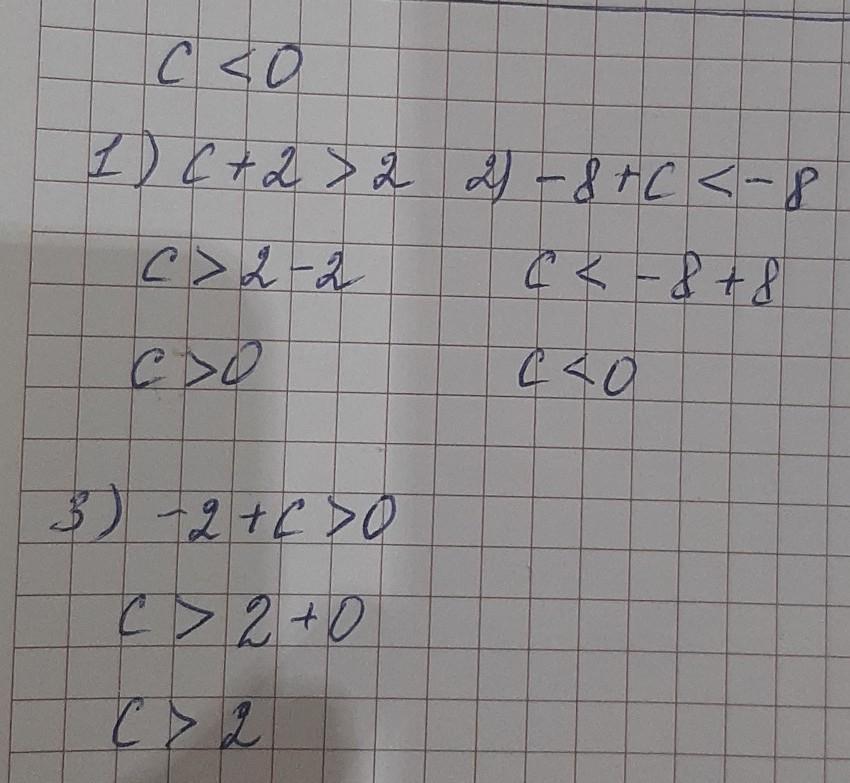 c < 0
1) c + 2 > 2
c > 2 - 2
c > 0
2) - 8 + c < - 8
c < - 8 + 8
c < 0
3) - 2 + c > 0
c > 2 + 0
c > 2